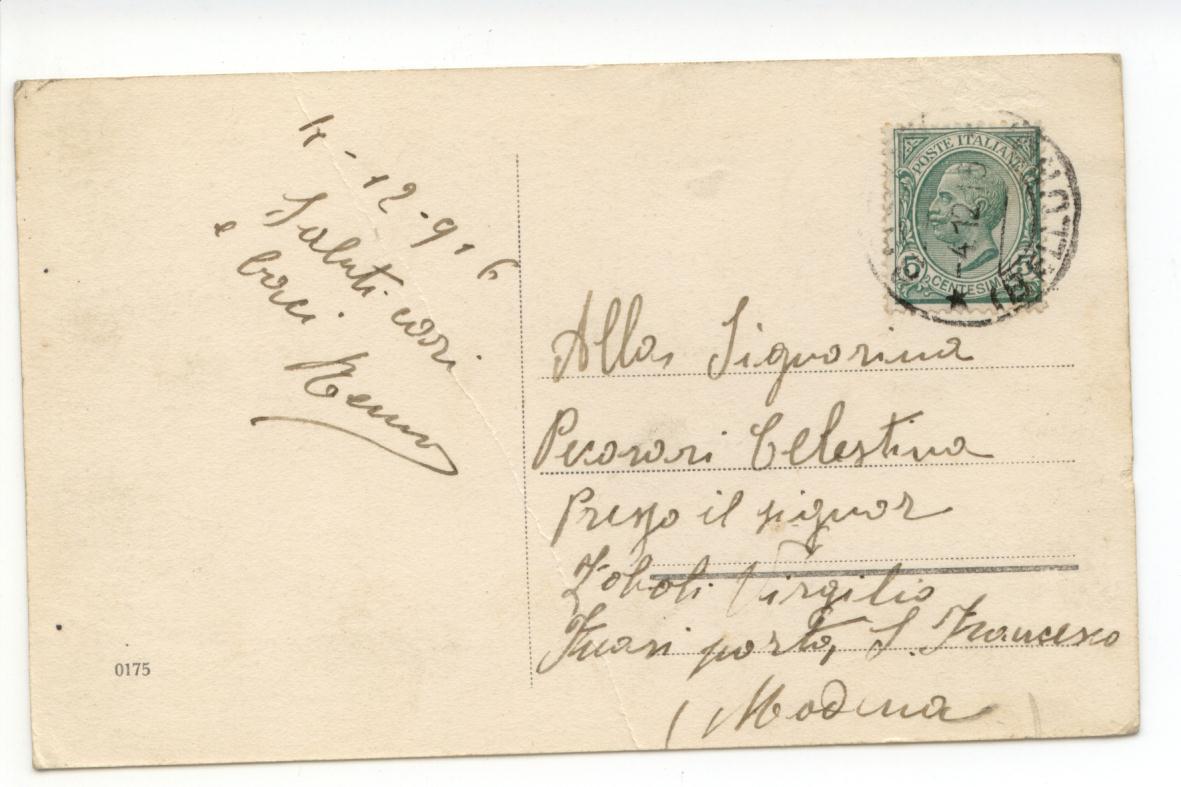 4-12-916
Saluti cari
e baci
POSTE ITALIANE
-4.12
5 CENTESIMI
Alla Signorina
Pecorari Celestina
Presso il signor
Zoboli Virgilio
Fuori porta, S. Francesco
(Modena)
0175